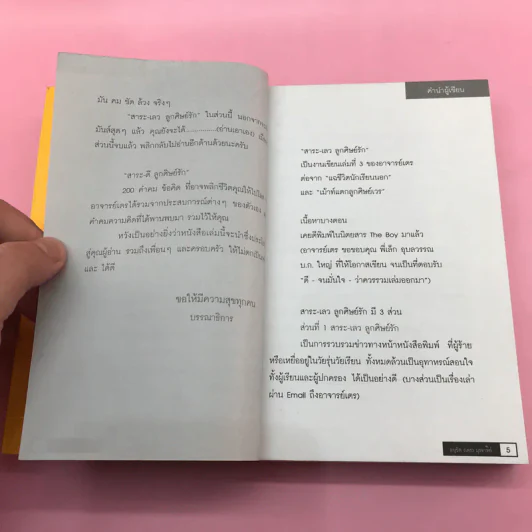 มัน คม ชัด ล้วง จริงๆ
"สาระ-เลว ลูกศิษย์รัก" ในส่วนนี้ นอกจาก
มันส์สุดๆ แล้ว คุณยังจะได้.............(อ่านเอาเอง)
ส่วนนี้จบแล้ว พลิกกลับไปอ่านอีกด้านด้วยนะครับ
"สาระ-ดี ลูกศิษย์รัก"
200 คำคม ข้อคิด ที่อาจพลิกชีวิตคุณให้ไป
อาจารย์เดรได้รวมจากประสบการณ์ต่างๆ ของตัวเอง
คำคมความคิดที่ได้พานพบมา รวมไว้ให้คุณ
หวังเป็นอย่างยิ่งว่าหนังสือเล่มนี้จะนำซึ่ง
สู่คุณผู้อ่าน รวมถึงเพื่อนๆ และครอบครัว ให้
และ ได้ดี
ขอให้มีความสุขทุกคน
บรรณาธิการ
คำนำผู้เขียน
"สาระ-เลว ลูกศิษย์รัก"
เป็นงานเขียนเล่มที่ 3 ของอาจารย์เดร
ต่อจาก "แฉชีวิตนักเรียนนอก"
และ "เม้าท์แตกลูกศิษย์เวร"
เนื้อหาบางตอน
เคยตีพิมพ์ในนิตยสาร The Boy มาแล้ว
(อาจารย์เดร ขอขอบคุณ พี่เล็ก อุบลวรรณ
บ.ก. ใหญ่ ที่ให้โอกาสเขียน จนเป็นที่ตอบรับ
"ดี - จนมั่นใจ - ว่าควรรวมเล่มออกมา")
สาระ-เลว ลูกศิษย์รัก มี 3 ส่วน
ส่วนที่ 1 สาระ-เลว ลูกศิษย์รัก
เป็นการรวบรวมข่าวทางหน้าหนังสือพิมพ์ ที่ผู้ร้าย
หรือเหยื่ออยู่ในวัยรุ่นวัยเรียน ทั้งหมดล้วนเป็นอุทาหรณ์สอนใจ
ทั้งผู้เรียนและผู้ปกครอง ได้เป็นอย่างดี (บางส่วนเป็นเรื่องเล่า
ผ่าน Email ถึงอาจารย์เดร)
5